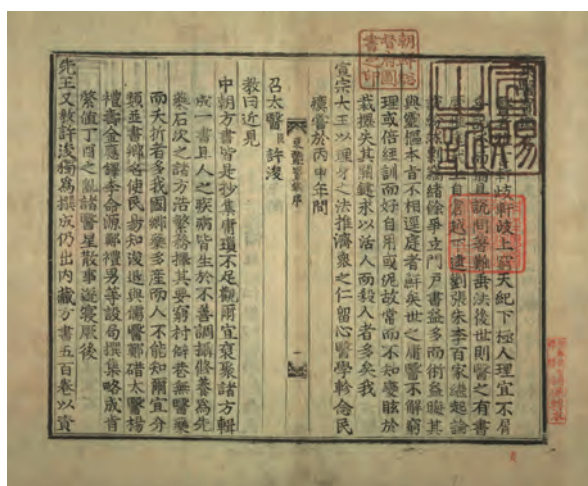 朝鮮總
督府圖
書之印
宣賜
之記
軒岐軒岐上窮天紀下極人理宜不屑
且說問著難垂法後世則醫之有書
上自倉越下逮劉張朱李百家繼起論
緖餘爭立門戶書益多而術益晦其
與靈樞本旨不相逕庭者鮮矣世之庸醫不解窮
理或倍經訓而好自用或泥故常而不知變眩於
裁擇失其關鍵求以活人而殺人者多矣我
宣宗大王以理身之法推濟衆之仁留心醫學軫念民
瘼嘗於丙申年間
東醫寶鑑序 一
召太醫臣許浚
敎曰近見
中朝方書皆是抄集庸瑣不足觀爾宜裒聚諸方輯
成一書且人之疾病皆生於不善調攝修養爲先
藥石次之諸方浩繁務擇其要窮村僻巷無醫藥
而夭折者多我國鄉藥多產而人不能知爾宜分
類並書鄉名使民易知浚退與儒醫鄭碏太醫楊
禮壽金應鐸李命源鄭禮男等設局撰集略成肯
綮值丁酉之亂諸醫星散事遂寢厥後
先王又敎許浚獨爲撰成仍出內藏方書五百卷以資